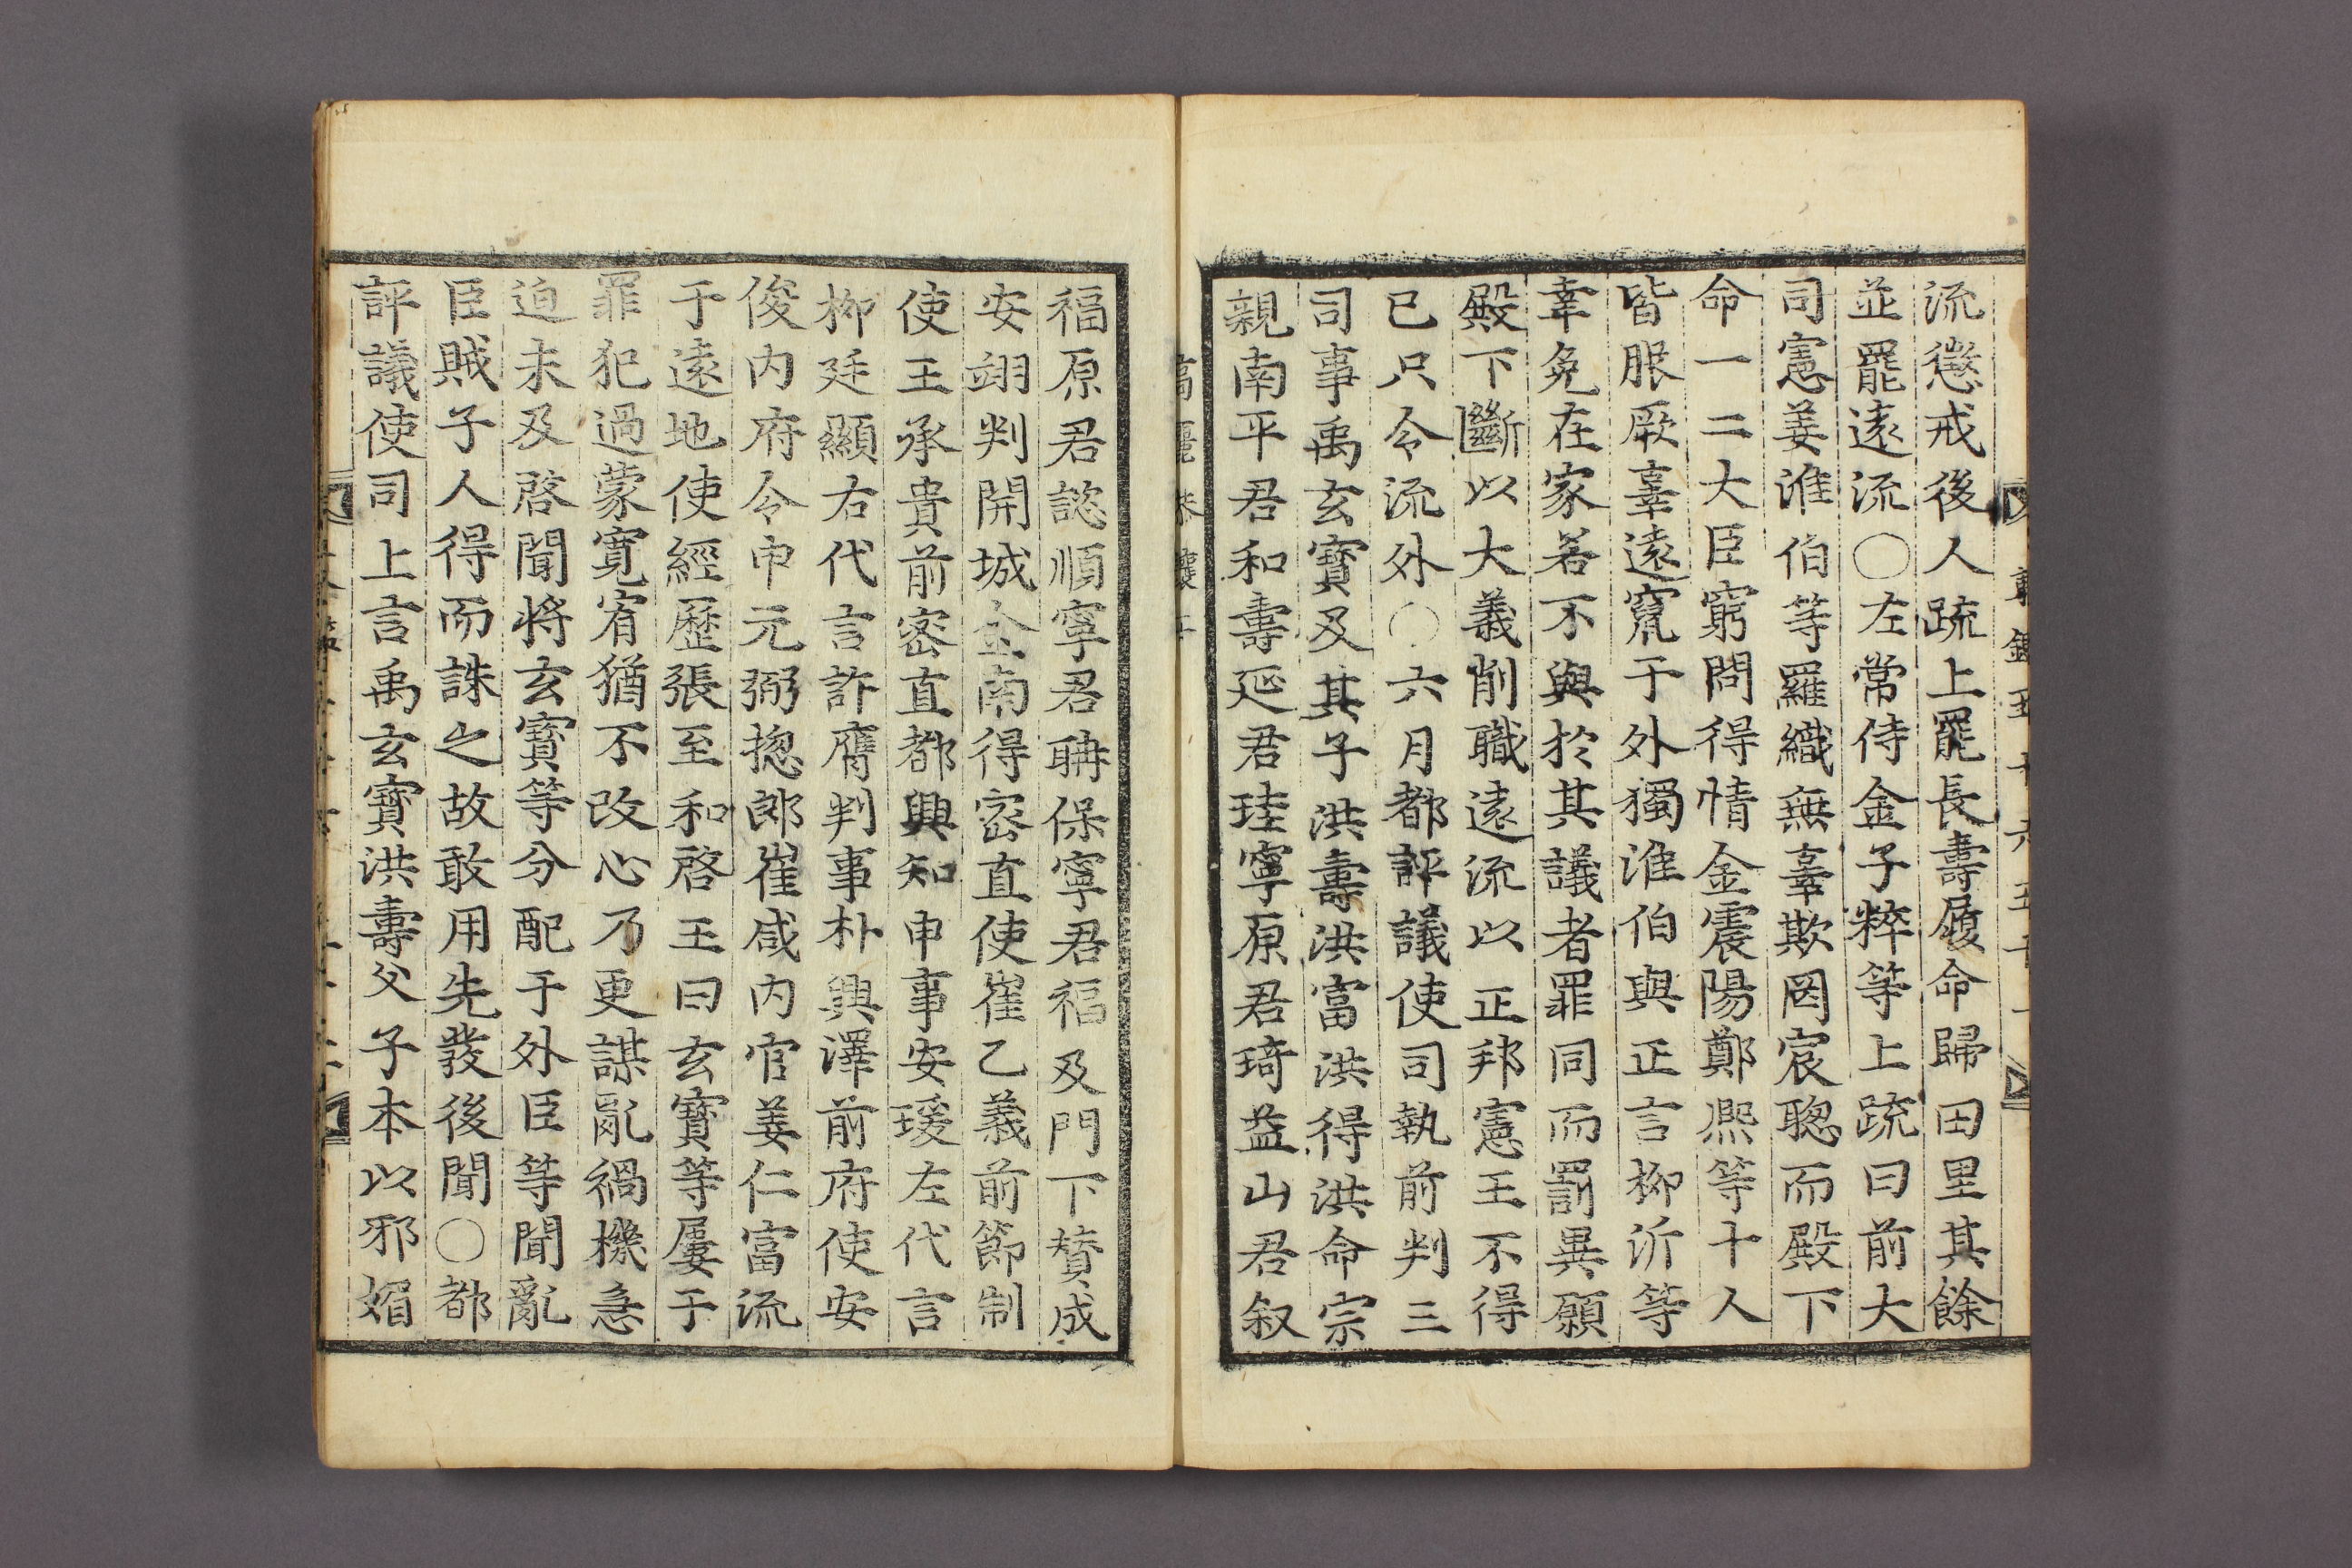 流懲戒後人疏上罷長壽履命歸田里其餘
並罷遠流〇左常侍金子粹等上疏曰前大
司憲姜淮伯等羅織無辜欺罔宸聰而殿下
命一二大臣窮問得情金震陽鄭熙等十人
皆服厥辜遠竄于外獨淮伯與正言柳沂等
幸免在家若不與於其議者罪同而罰異願
殿下斷以大義削職遠流以正邦憲王不得
已只令流外〇六月都評議使司執前判三
司事禹玄寶及其子洪壽洪富洪得洪命宗
親南平君和壽延君珪寧原君琦益山君叙
福原君諮順寧君聃保寧君福及門下贊成
安翊判開城金南得密直使崔乙義前節制
使王承貴前密直都興知申事安瑗左代言
柳廷顯右代言許膺判事朴興澤前府使安
俊內府令申元弼揔郎崔咸內官姜仁富流
于遠地使經歷張至和啓王曰玄寶等屢于
罪犯過蒙寬宥猶不改心乃更謀亂禍機急
迫未及啓聞將玄寶等分配于外臣等聞亂
臣賊子人得而誅之故敢用先發後聞〇都
評議使司上言禹玄寶洪壽父子本以邪媚